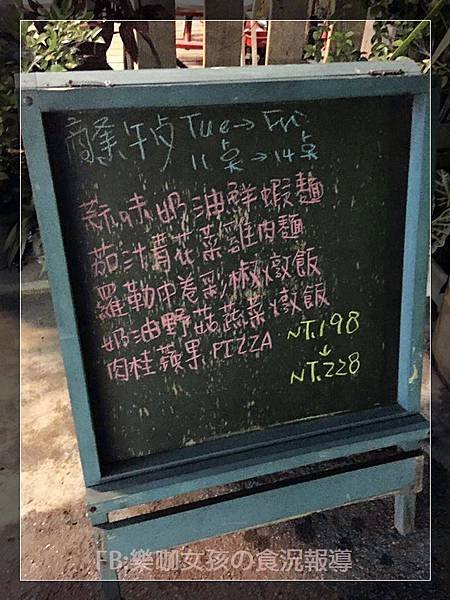 商業午餐 Tue→Fri
11點→14點
蒜味奶油鮮蝦麵
茄汁青花菜雞肉麵
羅勒中卷彩椒燉飯
奶油野菇蔬菜燉飯
肉桂蘋果PIZZA
NT.198
↓
NT.228
FB:樂咖女孩の食況報導